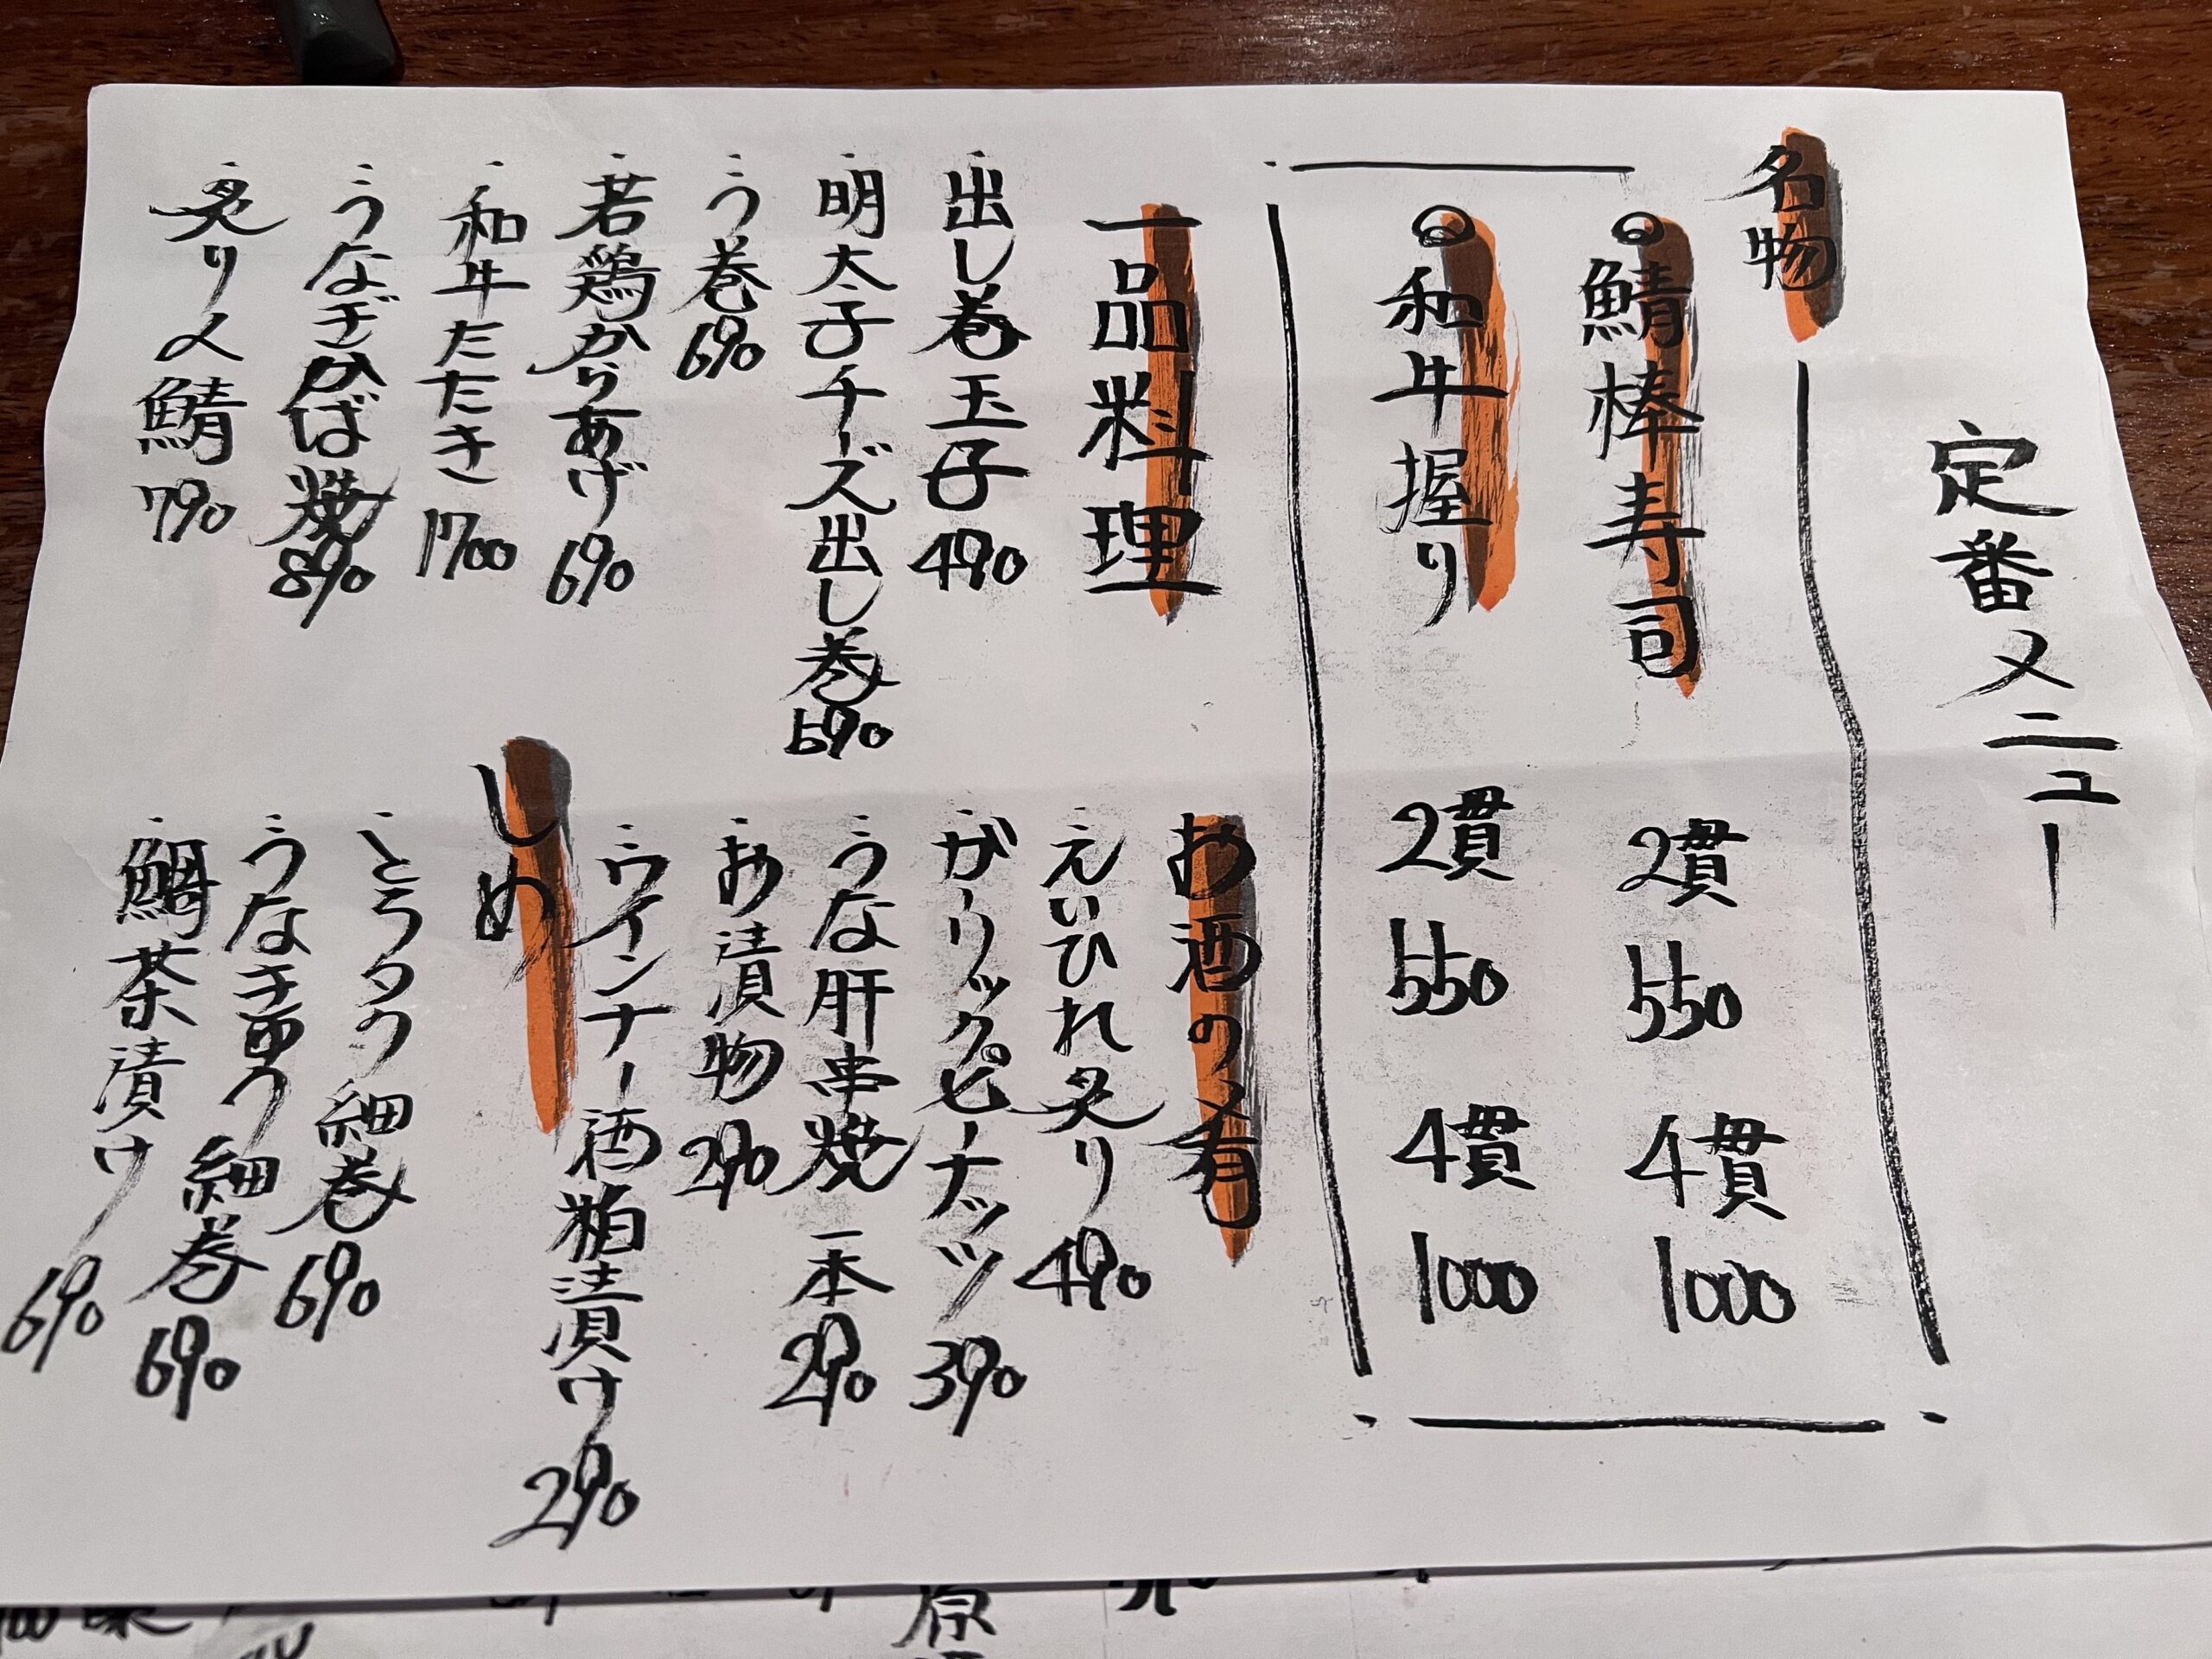 定番メニュー
名物
鯖棒寿司 2貫 550 4貫 1000
和牛握り 2貫 550 4貫 1000
一品料理
出し巻玉子 490
明太子チーズ出し巻 690
う巻 690
若鶏からあげ 690
和牛たたき 1700
うなぎかば焼 890
炙り〆鯖 790
お酒の肴
えいひれ炙り 490
ガーリックピーナッツ 390
うな肝串焼 一本 290
お漬物 290
ウインナー酒粕漬け 290
しめ
とろタク細巻 690
うなきゅう細巻 690
鯛茶漬け 690